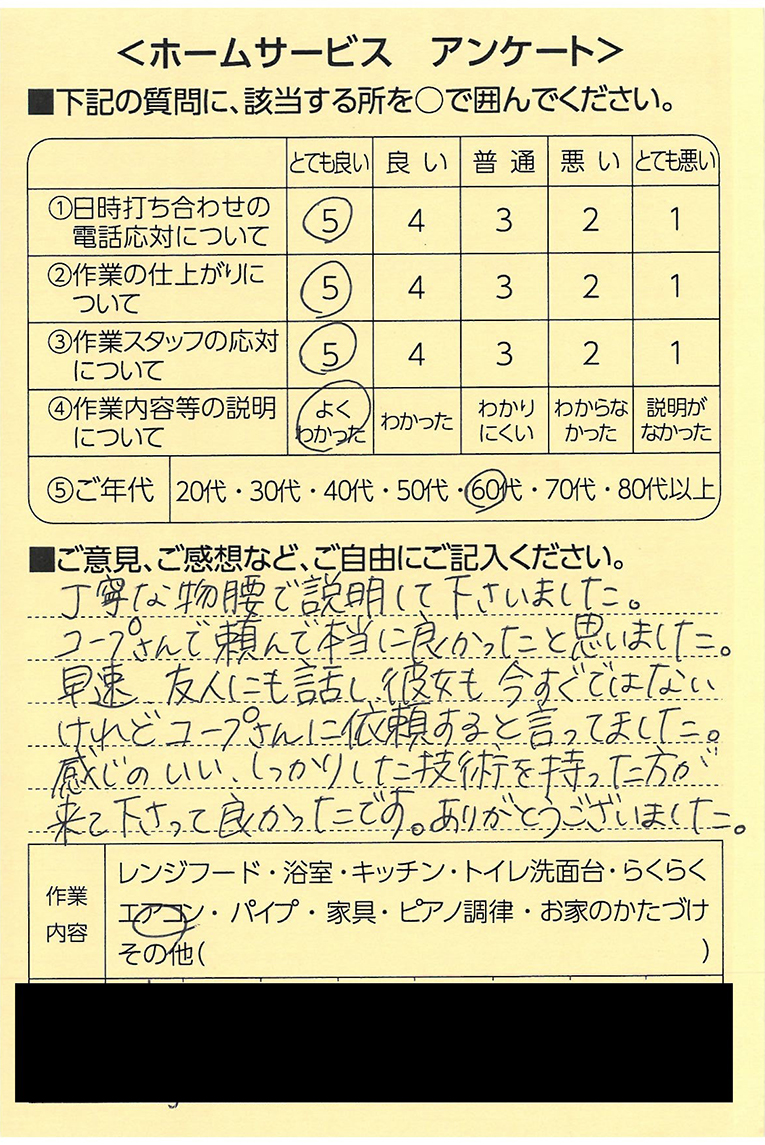 <ホームサービス アンケート>
■下記の質問に、該当する所を○で囲んでください。
とても良い 良い 普通 悪い とても悪い
①日時打ち合わせの電話応対について 5 4 3 2 1
②作業の仕上がりについて 5 4 3 2 1
③作業スタッフの応対について 5 4 3 2 1
④作業内容等の説明について よくわかった わかった わかりにくい わからなかった 説明がなかった
⑤ご年代 20代・30代・40代・50代・60代・70代・80代以上
■ご意見、ご感想など、ご自由にご記入ください。
丁寧な物腰で説明して下さいました。
コープさんで頼んで本当に良かったと思いました。
早速、友人にも話し、彼女も今すぐではない
けれどコープさんに依頼すると言ってました。
感じのいい、しっかりした技術を持った方が
来て下さって良かったです。ありがとうございました。
作業内容
レンジフード・浴室・キッチン・トイレ洗面台・らくらく
エアコン・パイプ・家具・ピアノ調律・お家のかたづけ
その他( )